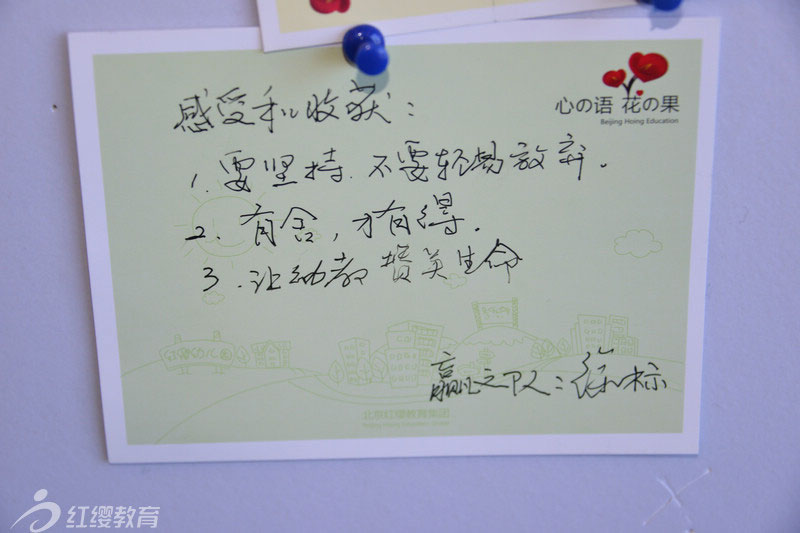 心の语 花の果
Beijing Hoing Education
感受和收获：
1. 要坚持. 不要轻易放弃。
2. 有舍，才有得。
3. 让幼教 赞美生命
赢之队：徐标
北京红缨教育集团
红缨教育